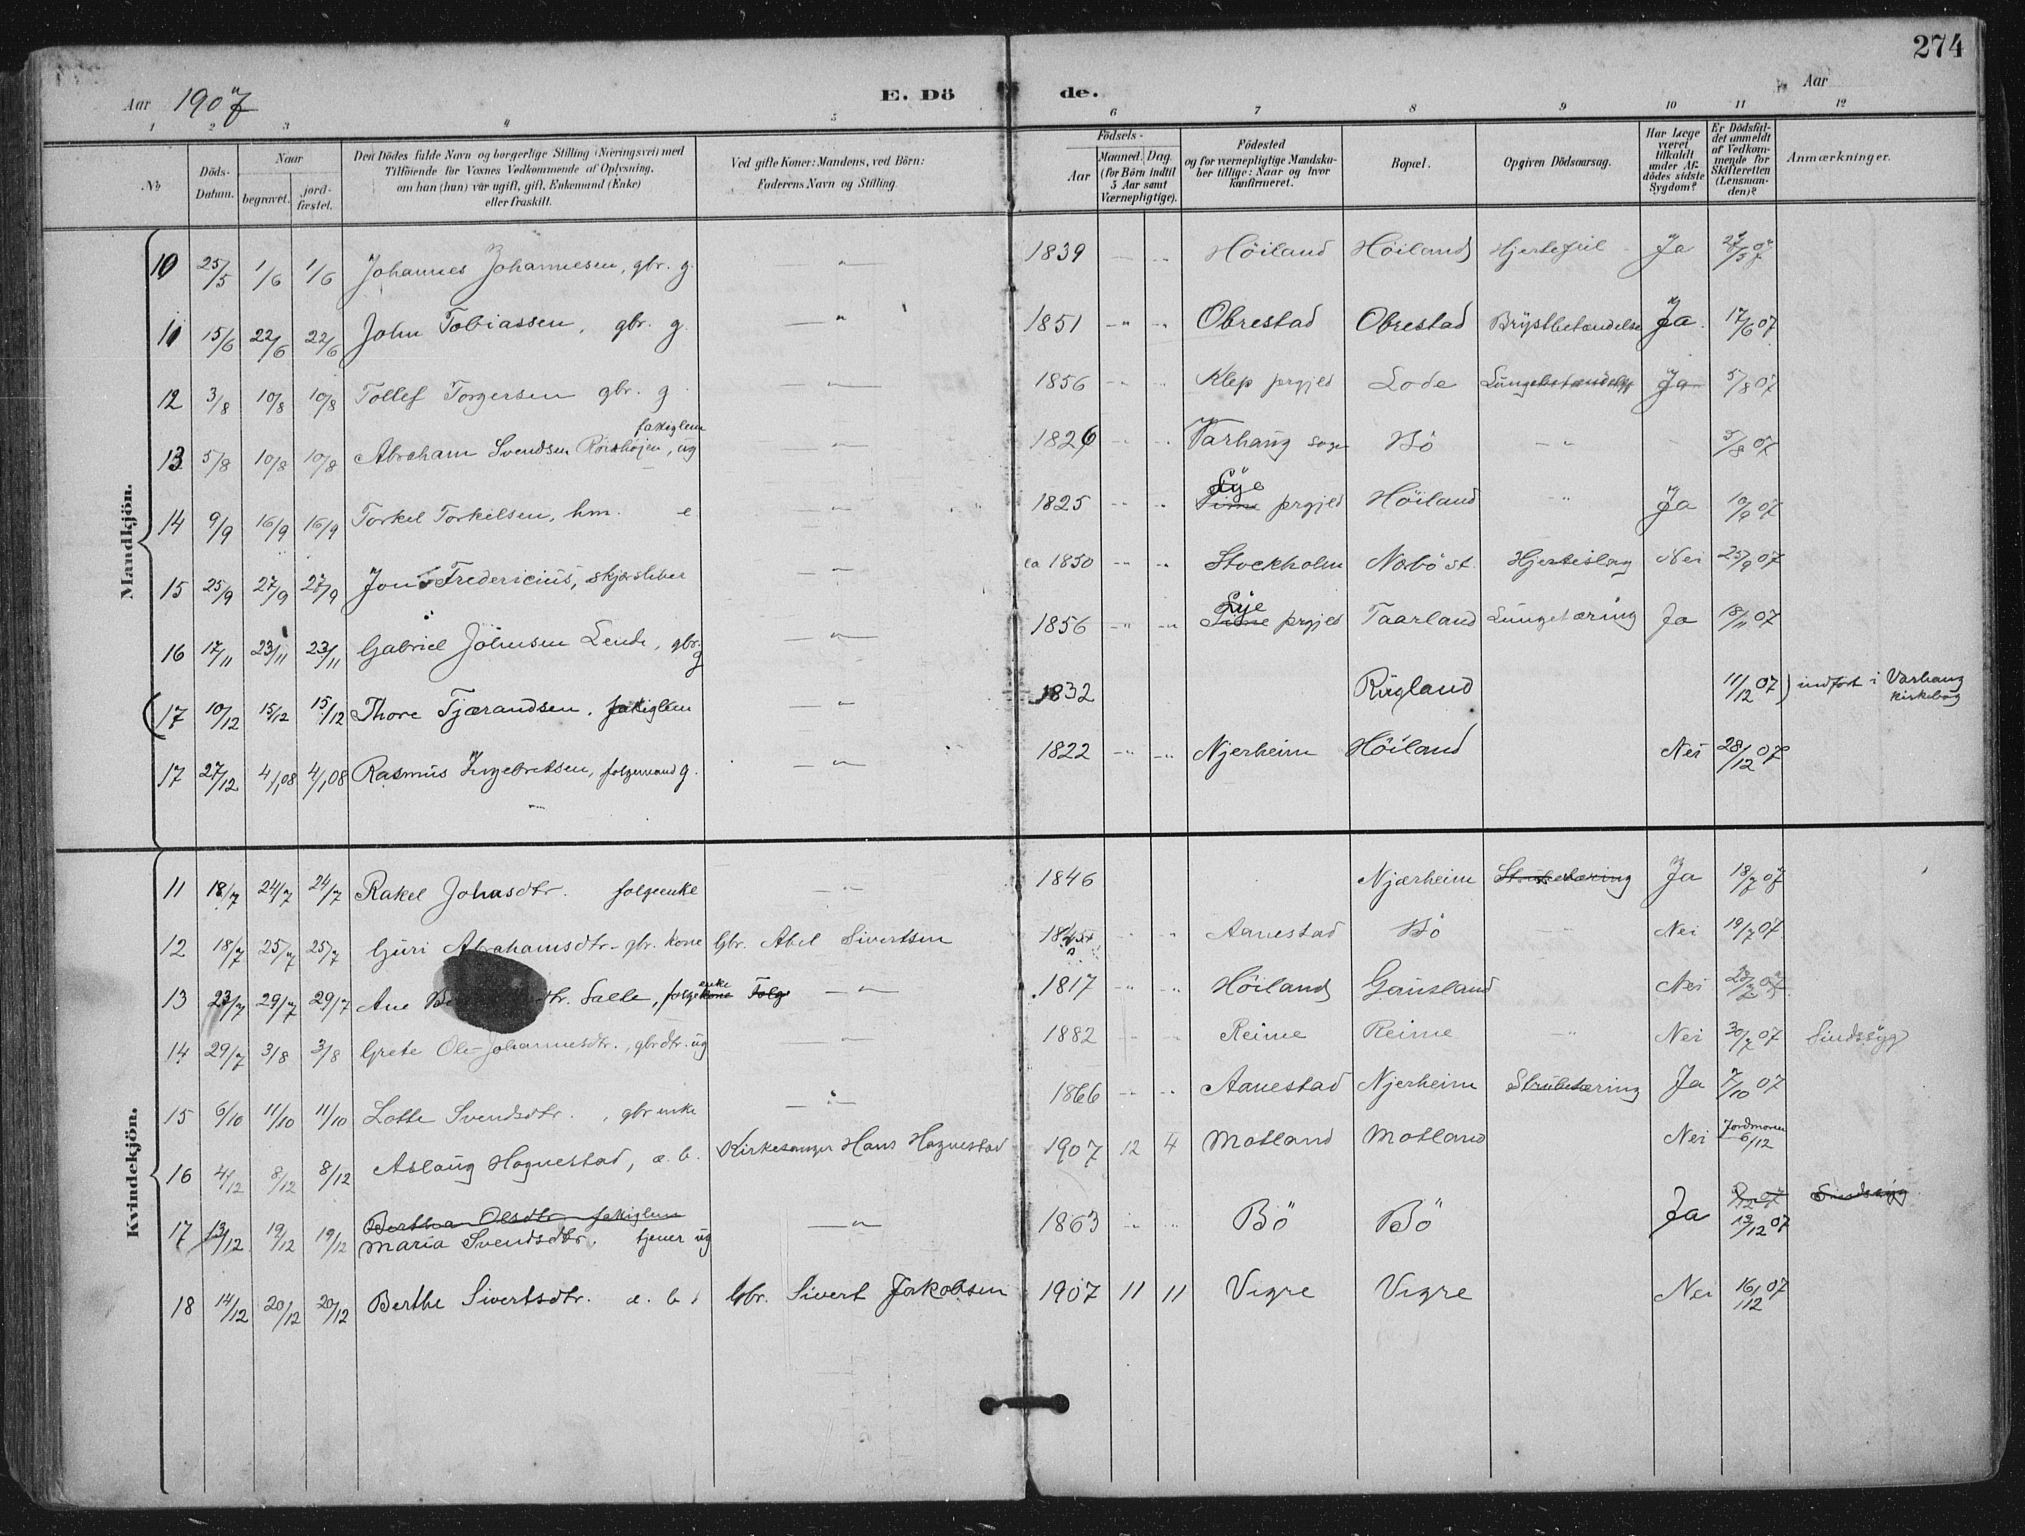 274
Aar 1907
E. Dö de.
Aar
1 2 3 4 5 6 7 8 9 10 11 12
No
Döds-Datum.
Naar
begravet.
jord-fæstet.
Den Dödes fulde Navn og borgerlige Stilling (Næringsvei) med
Tilföiende for Voxnes Vedkommende af Oplysning,
om han (hun) var ugift, gift, Enkemand (Enke)
eller fraskilt.
Ved gifte Koner: Mandens, ved Börn:
Faderens Navn og Stilling.
Födsels-
Aar
Maaned. Dag.
(for Börn indtil
5 Aar samt
Værnepligtige).
Födested
og for værnepligtige Mandska-
ber tillige: Naar og hvor
konfirmeret.
Bopæl.
Opgiven Dödsaarsag.
Har Læge
været
tilkaldt
under Af-
dödes sidste
Sygdom?
Er Dödsfal-
det anmeldt
af Vedkom-
mende for
Skifteretten
(Lensman-
den)?
Anmærkninger.
Mandkjön.
10 25/5 1/6 1/6 Johannes Johannesen, gbr. g. — " — 1839 Höiland Höiland Hjertefeil Ja 27/5 07
11 15/6 22/6 22/6 John Tobiassen, gbr. g. — " — 1851 - " - - " - Obrestad Obrestad Brÿstbetændelse Ja. 17/6 07
12 3/8 10/8 10/8 Tollef Torgersen gbr. g. — " — 1856 Klep prgjeld Lode Lungebetændelse Ja 5/8 07
fattiglem
13 5/8 10/8 10/8 Abraham Svendsen, ug — " — 1826 Varhaug sogn Bö — " — 5/8 07
Lye
14 9/9 16/9 16/9 Torkel Torkelsen, hm. e. " 1825 Time prgjeld Höiland " Ja 10/9 07
15 25/9 27/9 27/9 Fredericius, skjærsliber — " — ca 1850 Stockholm Nærbö st. Hjerteslag Nei 25/9 07
Lye
16 17/11 23/11 23/11 Gabriel Johnsen Lende, gbr. g — " — 1856 Time prgjeld Taarland Lungetæring Ja 18/11 07
(17 10/12 15/12 15/12 Thore Tjærandsen, fattiglem — " — 1832 Rügland 11/12 07) indfört i Varhaug
kirkebog
17 27/12 4/1 08 4/1 08 Rasmus Ingebretsen, folgemand g. — " — 1822 Njerheim Höiland Nei 28/12 07
Kvindekjön.
11 18/7 24/7 24/7 Rakel Johnsdtr. folgeenke — " — 1846 Njærheim Strubetæring Ja 18/7 07
12 18/7 25/7 25/7 Guri Abrahamsdtr. gbr. kone Gbr. Abel Sivertsen Aanestad Bö Nei 19/7 07
enke
13 23/7 29/7 29/7 Ane Salte, folgekone Folg — " — 1817 Höiland Gausland Nei 07
14 29/7 3/8 3/8 Grete Ole-Johannesdtr., gbrdtr. ug — " — 1882 Reime Reime " Nei 30/7 07 Sindssÿg
15 6/10 11/10 11/10 Lotte Svendsdtr., gbr enke — " — 1866 Aanestad Njerheim Strubetæring Ja 7/10 07
16 4/12 8/12 8/12 Aslaug Hognestad, æ. b. Kirkesanger Hans Hognestad 1907 12 4 Motland Motland Nei Jordmoren
6/12
Bertha Olsdtr. fattiglem Sindssyg
17 13/12 19/12 19/12 Maria Svendsdtr. tjener ug — " — 1863 Bö Bö Ja 13/12 07
18 14/12 20/12 20/12 Berthe Sivertsdtr. æ. b. Gbr. Sivert Jakobsen 1907 11 11 Vigre Vigre Nei 16/12 07